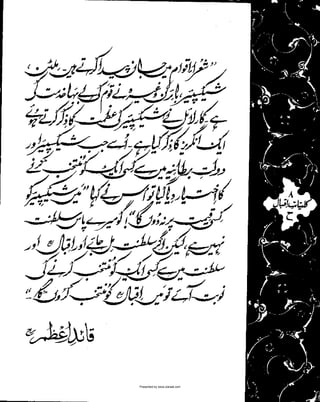 "شعراء اقوام میں جان پیدا کرتے ہیں۔ ملٹن،
شیکسپیئر، بائرن وغیرہ نے قوم کی بے بہا خدمت کی
ہے۔ کارلائل نے شیکسپیئر کی عظمت کا ذکر کرتے ہوئے
ایک انگریز کا ذکر کیا ہے۔ اسے جب شیکسپیئر اور
دولتِ برطانیہ میں سے کسی ایک کو منتخب کرنے
کا اختیار دیا گیا تو اس نے کہا "میں شیکسپیئر کو
کسی قیمت پر نہ دوں گا" گو میرے پاس سلطنت
نہیں ہے لیکن اگر سلطنت مل جائے اور اقبالؒ اور
سلطنت میں سے کسی ایک کو منتخب کرنے کی
نوبت آئے تو میں اقبالؒ کو منتخب کروں گا"
قائداعظمؒ
۸
کلیاتِ اقبال
ح